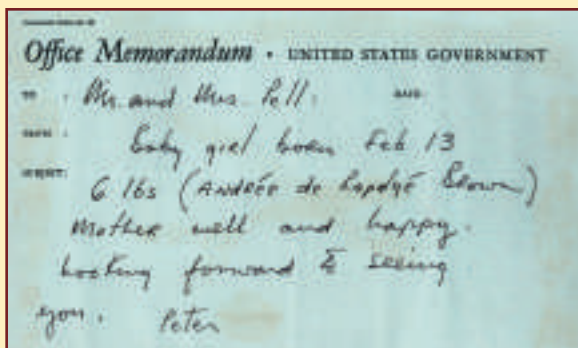 Office Memorandum • UNITED STATES GOVERNMENT
TO : Mr. and Mrs. Pell. DATE:
FROM :
Baby girl born Feb 13
SUBJECT:
6 lbs (ANDRÉE de Brown)
Mother well and happy.
Looking forward to seeing
you. Peter